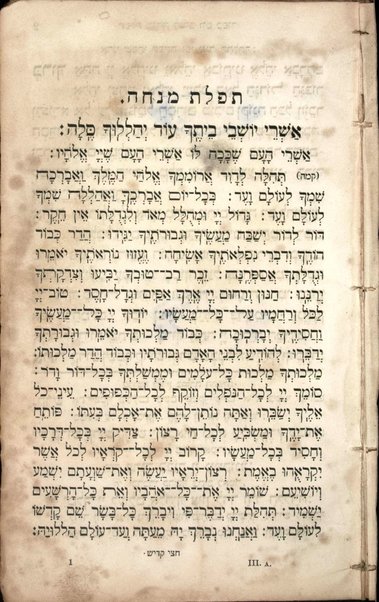 תפלת מנחה.
אַשְׁרֵי יוֹשְׁבֵי בֵיתֶךָ עוֹד יְהַלְלוּךָ סֶּלָה:
אַשְׁרֵי הָעָם שֶׁכָּכָה לּוֹ אַשְׁרֵי הָעָם שֶׁיְיָ אֱלֹהָיו:
(קמה) תְּהִלָּה לְדָוִד אֲרוֹמִמְךָ אֱלוֹהַי הַמֶּלֶךְ וַאֲבָרְכָה
שִׁמְךָ לְעוֹלָם וָעֶד: בְּכָל־יוֹם אֲבָרְכֶךָּ וַאֲהַלְלָה שִׁמְךָ
לְעוֹלָם וָעֶד: גָּדוֹל יְיָ וּמְהֻלָּל מְאֹד וְלִגְדֻלָּתוֹ אֵין חֵקֶר:
דּוֹר לְדוֹר יְשַׁבַּח מַעֲשֶׂיךָ וּגְבוּרֹתֶיךָ יַגִּידוּ: הֲדַר כְּבוֹד
הוֹדֶךָ וְדִבְרֵי נִפְלְאֹתֶיךָ אָשִׂיחָה: וֶעֱזוּז נוֹרְאֹתֶיךָ יֹאמֵרוּ
וּגְדֻלָּתְךָ אֲסַפְּרֶנָּה: זֵכֶר רַב־טוּבְךָ יַבִּיעוּ וְצִדְקָתְךָ
יְרַנֵּנוּ: חַנּוּן וְרַחוּם יְיָ אֶרֶךְ אַפַּיִם וּגְדָל־חָסֶד: טוֹב־יְיָ
לַכֹּל וְרַחֲמָיו עַל־כָּל־מַעֲשָׂיו: יוֹדוּךָ יְיָ כָּל־מַעֲשֶׂיךָ
וַחֲסִידֶיךָ יְבָרְכוּכָה: כְּבוֹד מַלְכוּתְךָ יֹאמֵרוּ וּגְבוּרָתְךָ
יְדַבֵּרוּ: לְהוֹדִיעַ לִבְנֵי הָאָדָם גְּבוּרֹתָיו וּכְבוֹד הֲדַר מַלְכוּתוֹ:
מַלְכוּתְךָ מַלְכוּת כָּל־עֹלָמִים וּמֶמְשַׁלְתְּךָ בְּכָל־דּוֹר וָדֹר:
סוֹמֵךְ יְיָ לְכָל־הַנֹּפְלִים וְזוֹקֵף לְכָל־הַכְּפוּפִים: עֵינֵי־כֹל
אֵלֶיךָ יְשַׂבֵּרוּ וְאַתָּה נוֹתֵן־לָהֶם אֶת־אָכְלָם בְּעִתּוֹ: פּוֹתֵחַ
אֶת־יָדֶךָ וּמַשְׂבִּיעַ לְכָל־חַי רָצוֹן: צַדִּיק יְיָ בְּכָל־דְּרָכָיו
וְחָסִיד בְּכָל־מַעֲשָׂיו: קָרוֹב יְיָ לְכָל־קֹרְאָיו לְכֹל אֲשֶׁר
יִקְרָאֻהוּ בֶאֱמֶת: רְצוֹן־יְרֵאָיו יַעֲשֶׂה וְאֶת־שַׁוְעָתָם יִשְׁמַע
וְיוֹשִׁיעֵם: שׁוֹמֵר יְיָ אֶת־כָּל־אֹהֲבָיו וְאֵת כָּל־הָרְשָׁעִים
יַשְׁמִיד: תְּהִלַּת יְיָ יְדַבֶּר־פִּי וִיבָרֵךְ כָּל־בָּשָׂר שֵׁם קָדְשׁוֹ
לְעוֹלָם וָעֶד: וַאֲנַחְנוּ נְבָרֵךְ יָהּ מֵעַתָּה וְעַד־עוֹלָם הַלְלוּיָהּ:
חצי קדיש.
1 III. A.